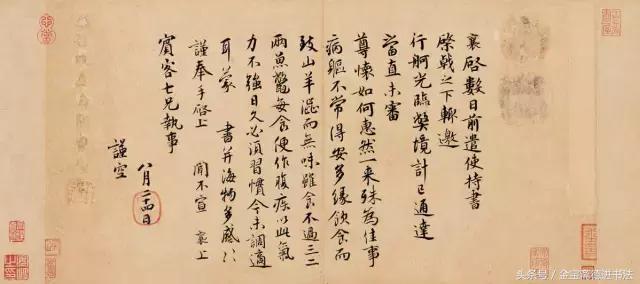 襄啓數日前遣使持書
棨戟之下輙邀
行舸光臨弊境計已通達
當直未審
尊懷如何惠然一来殊為佳事
病軀不常得安多緣飲食而
致山羊澀而無味雖食不過三二
兩魚鼈每食便作腹疾以此氣
力不強日久必須習慣今未調適
耳蒙 書并海物多感〻
謹奉手啓上 聞不宣 襄上
賓客七兄執事
八月二十四日
謹空
头条号 / 金宝斋德进书法